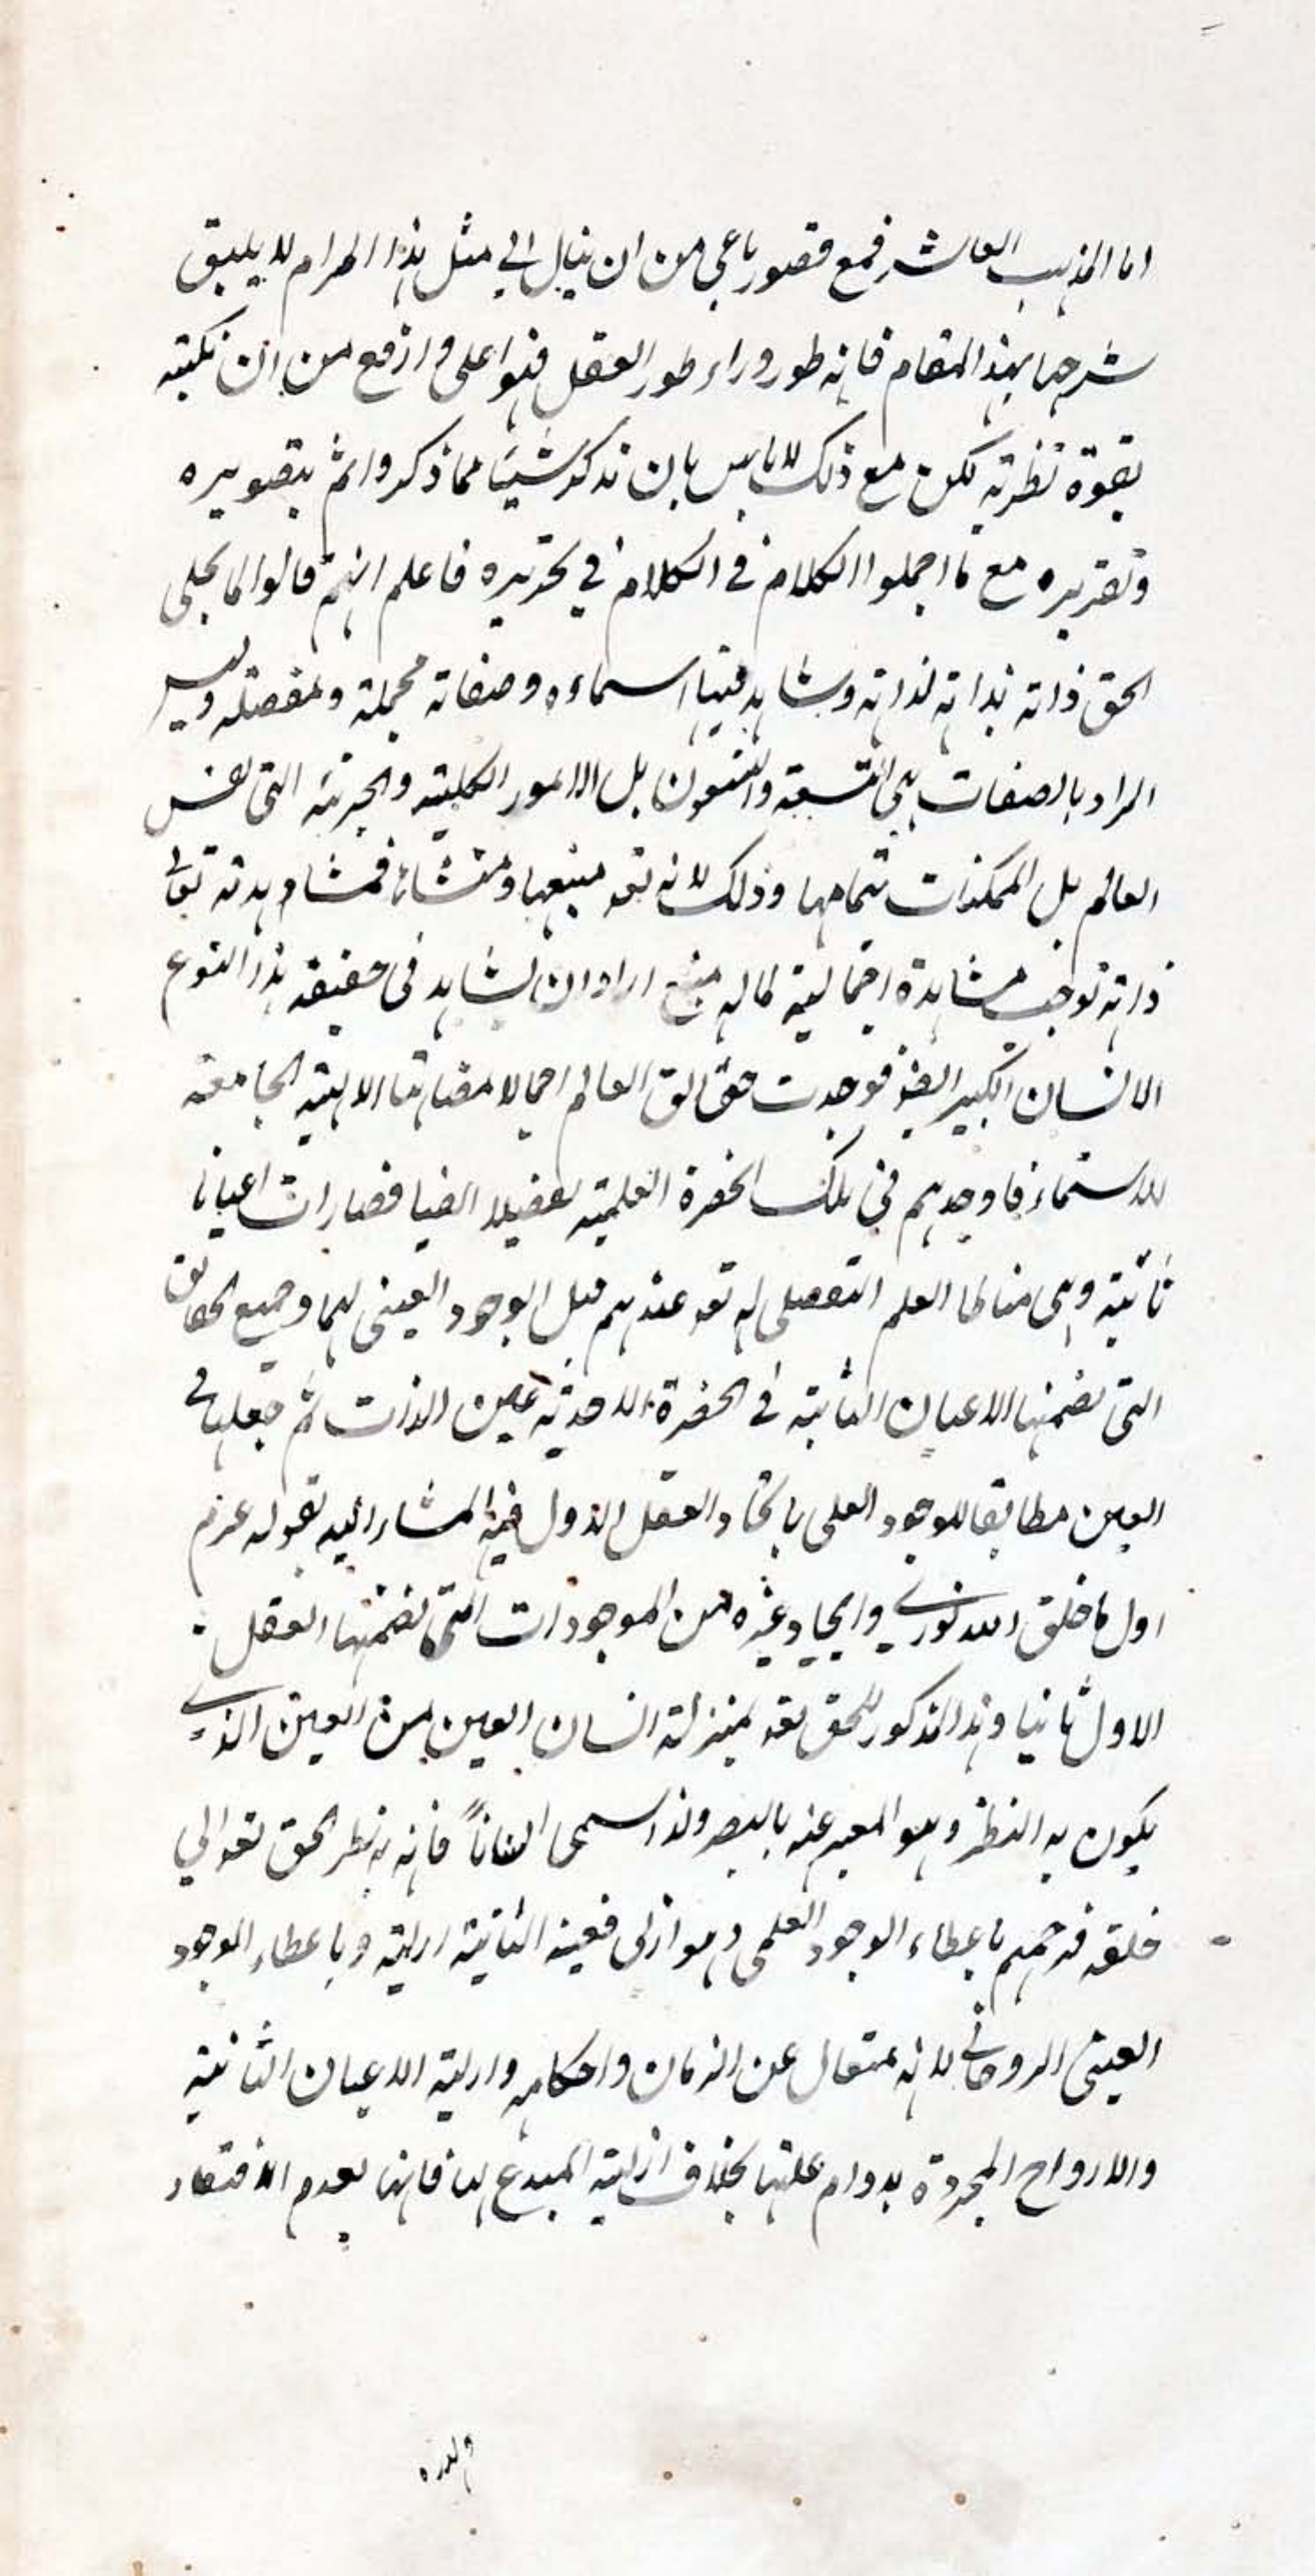 اما المذهب العاشر فمع قصور باعي من ان ينال الي مثل هذا المرام لا يليق
شرحها بهذا المقام فانه طور وراء طور العقل فهوا على وارفع من ان نكتبه
بقوة نظرية لكن مع ذلك لا باس بان نذكر شيئا مما ذكروا ثم بتصويره
وتقريره مع ما اجملوا الكلام في الكلام في تحريره فاعلم انهم قالوا لما تجلى
الحق ذاته بذاته لذاته وشاهد فيها اسماءه وصفاته مجملة ومفصلة وليس
المراد بالصفات هي التسعة والتسعون بل الامور الكلية والجزئية التي نفس
العالم بل الممكنات بتمامها وذلك لانه تعه منبعها ومنشاءها فمشاهدته تعالى
ذاته توجب مشاهدة اجمالية لما له منبع اراد ان يشاهد في حقيقة هذا النوع
الانسان الكبير ايضا فوجدت حقائق العالم اجمالا مضاهتا الالهية الجامعة
للاسماء فاوجدهم في تلك الحضرة العلمية تفصيلا ايضا فصارات اعيانا
ثابتة وهي مناط العلم التفصلي له تعه عندهم قبل الوجود العيني لها وجميع الحقائق
التي تضمنها الاعيان الثابتة في الحضرة الاحدية عين الذات ثم جعلها في
العين مطابقا للوجود العلمي باتحاد العقل الاول فيه المشار اليه بقوله عزم
اول ما خلق الله نوري وايجاد غيره من الموجودات التي تضمنها العقل
الاول ثانيا وهذا المذكور للحق تعه بمنزلة انسان العين من العين الذي
يكون به النظر وهو المعبر عنه بالبصر ولذا سمى انسانا فانه به نظر الحق تعه الي
خلقه فرحمهم باعطاء الوجود العلمي وهو ازلى فعينه الثابتة ازلية وباعطاء الوجود
العيني الروحاني لانه متعال عن الزمان واحكامه وازلية الاعيان الثابتة
والارواح المجردة بدوام علتها بخلاف ازلية المبدع لها فانها بعدم الافتقار